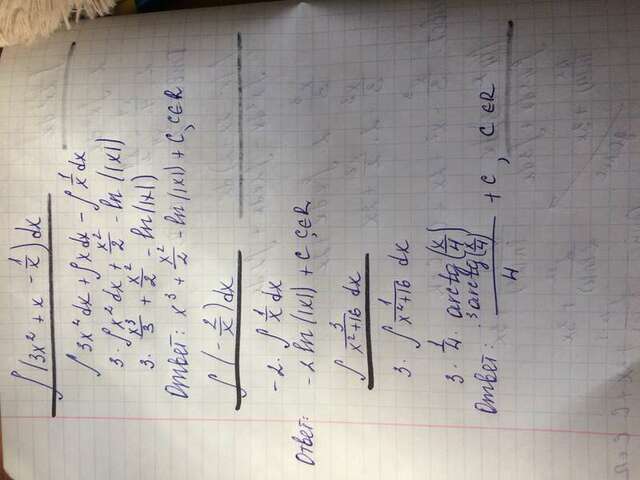 ∫(3x² + x - 1/x) dx
∫ 3x² dx + ∫ x dx - ∫ 1/x dx
3 · ∫ x² dx + x²/2 - ln(|x|)
3 · x³/3 + x²/2 - ln(|x|)
Ответ: x³ + x²/2 - ln(|x|) + C, C∈R
∫ (- 2/x) dx
-2 · ∫ 1/x dx
Ответ: -2 ln(|x|) + C C∈R
∫ 3/(x²+16) dx
3 · ∫ 1/(x²+16) dx
3 · 1/4 · arctg(x/4)
Ответ: 3arctg(x/4)/4 + C, C∈R